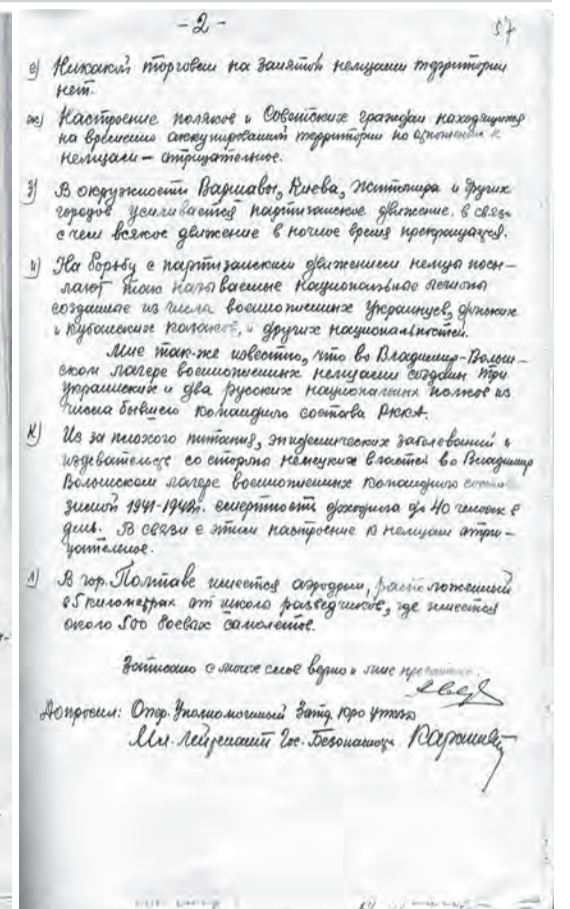 - 2 -
57
е) Никакой торговли на занятой немцами территории
нет.
ж) Настроение поляков и Советских граждан находящихся
на временно аккупированной территории по отношении к
немцам – отрицательное.
з) В окружности Варшавы, Киева, Житомира и других
городов усиливается партизанское движение, в связи
с чем всякое движение в ночное время прекращается.
и) На борьбу с партизанским движением немцы посы-
лают так называемые национальные легионы
созданные из числа военнопленных Украинцев, донских
и Кубанских казаков, и других национальностей.
Мне так-же известно, что во Владимир-Волын-
ском лагере военнопленных немцами создан три
украинских и два русских национальных полков из
числа бывшего командного состава РККА.
к) Из за плохого питания, эпидемических заболеваний и
издевательств со стороны немецких властей во Владимир
Волынском лагере военнопленных командного
зимой 1941-1942г. смертность доходила до 40 человек в
день. В связи с этим настроение к немцам отри-
цательное.
л) В гор. Полтаве имеется аэродром, расположенный
в 5 километрах от школы разведчиков, где имеется
около 500 боевых самолетов.
Записано с моих слов верно и мне
Допросил: Опер. Уполномоченный
Мл. Лейтенант Гос. Безопасност